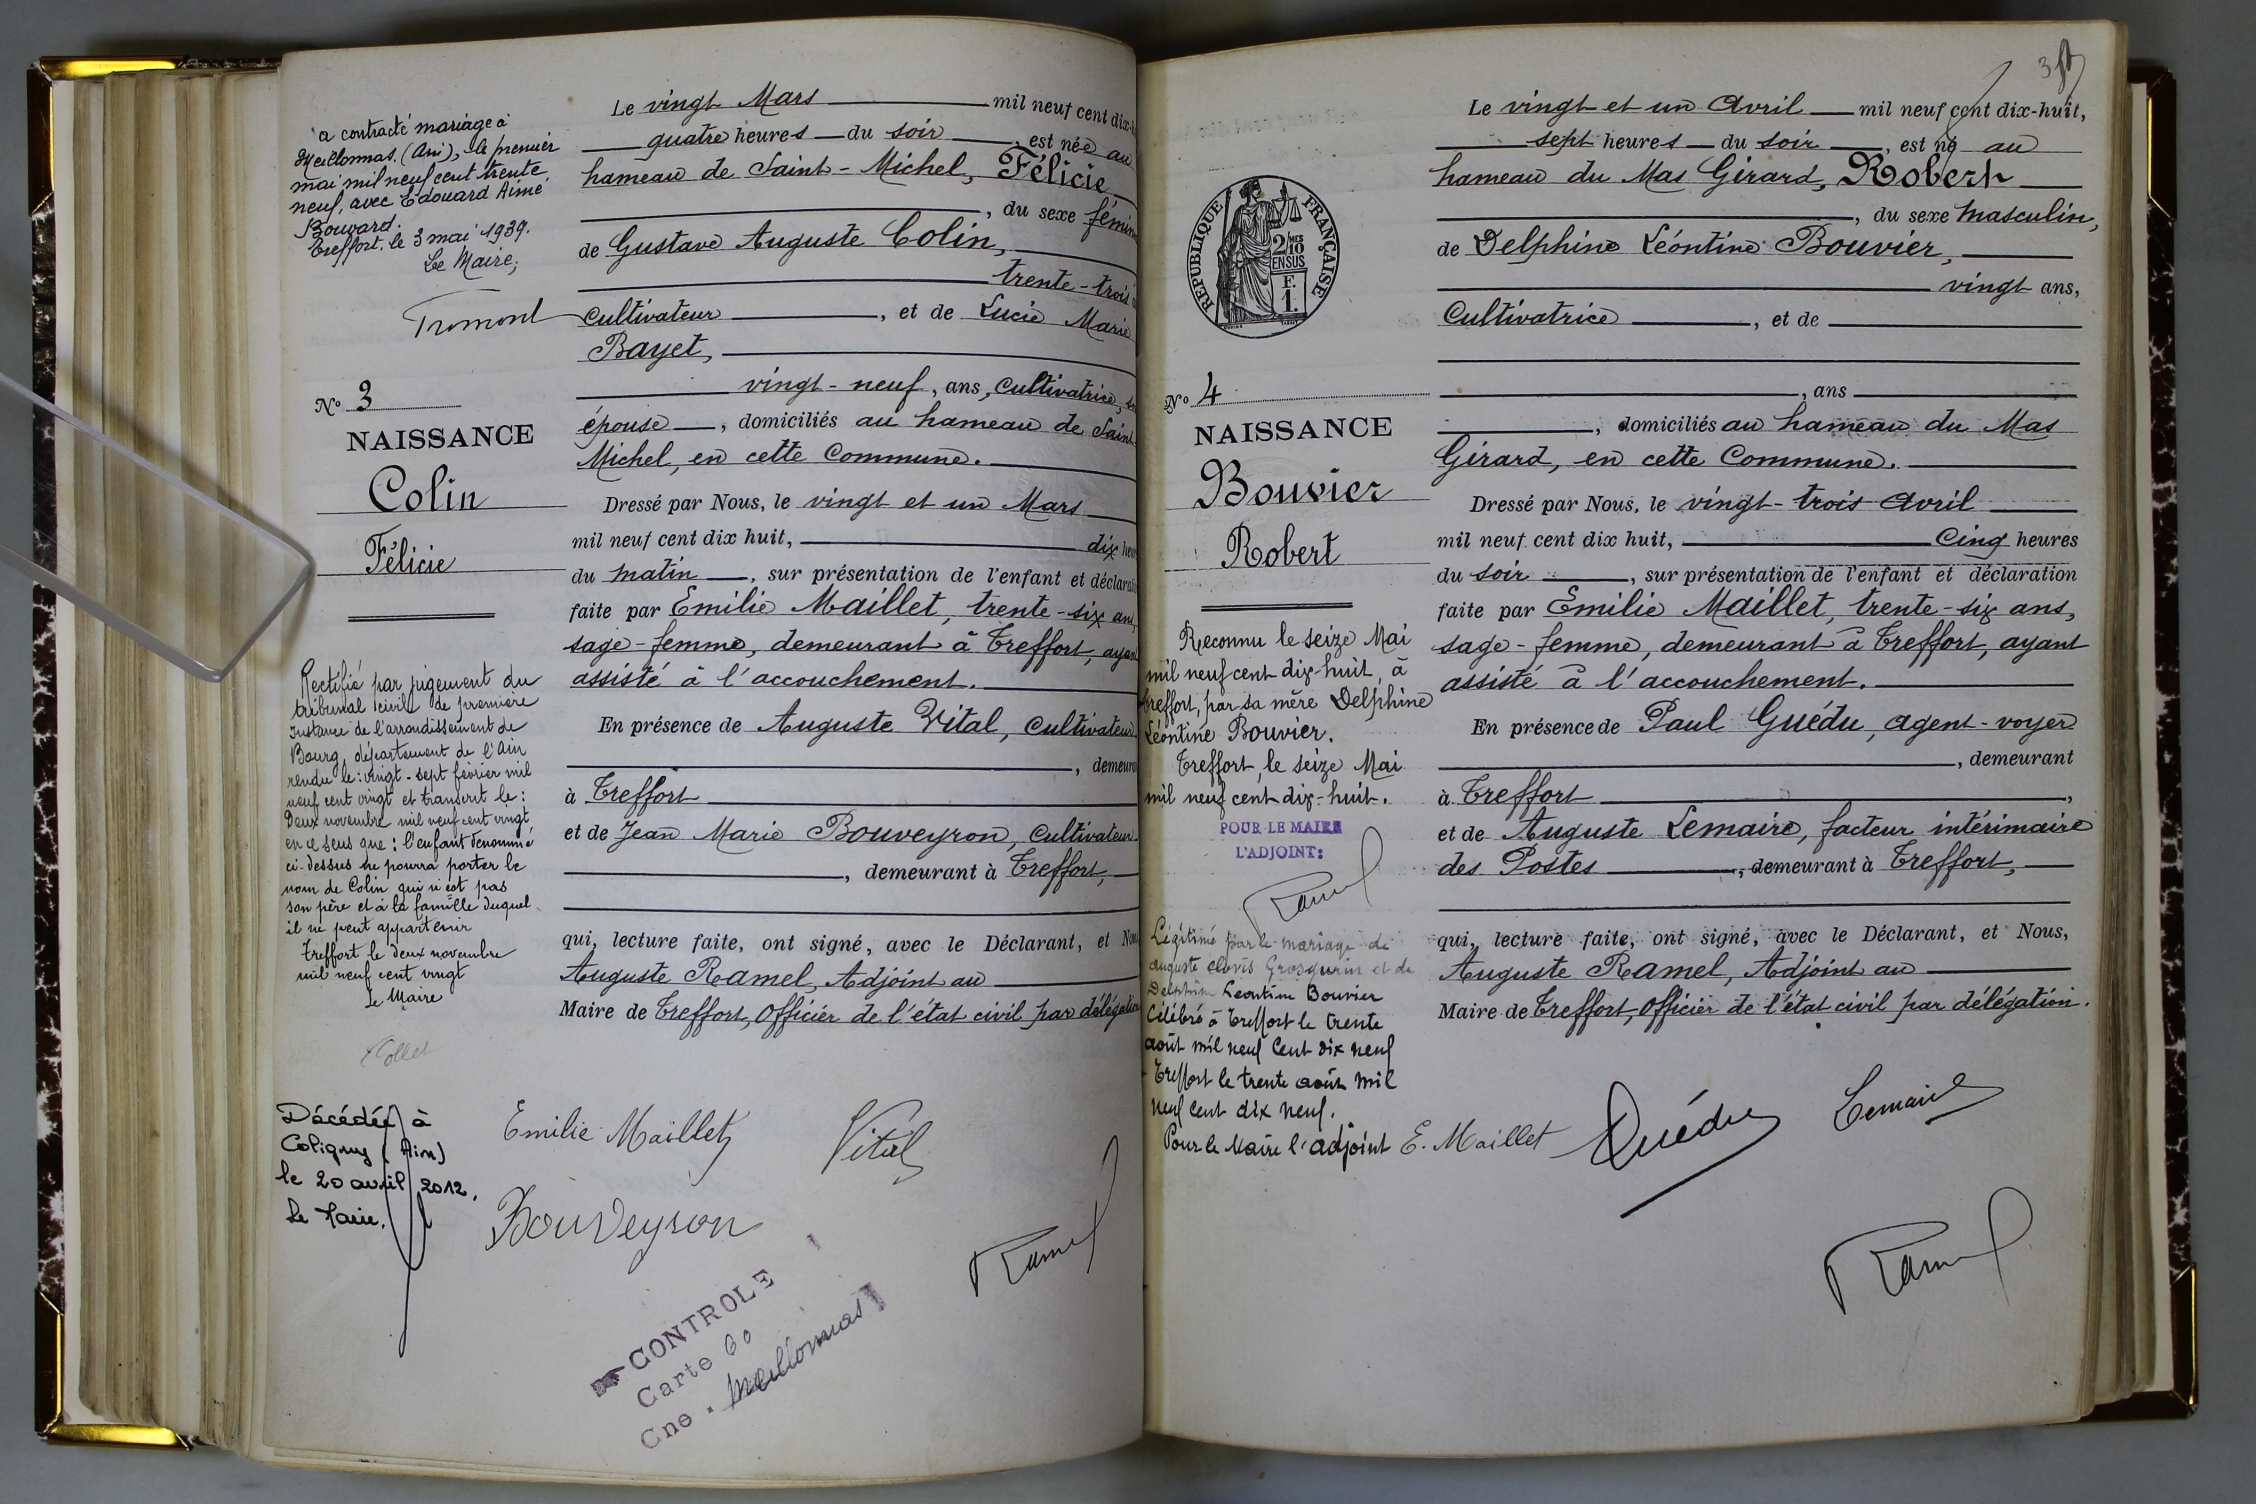 a contracté mariage à
Meillonnas (Ain), le premier
mai mil neuf cent trente
neuf, avec Edouard Aimé
Bouvard.
Treffort, le 3 mai 1939.
Le Maire,
Tromont
N° 3
NAISSANCE
Colin
Félicie
Rectifié par jugement du
tribunal civil de première
instance de l'arrondissement de
Bourg, département de l'Ain
rendu le : vingt-sept février mil
neuf cent vingt et transcrit le :
Deux novembre mil neuf cent vingt
en ce sens que : l'enfant dénommé
ci-dessus ne pourra porter le
nom de Colin qui n'est pas
son père et à la famille duquel
il ne peut appartenir
Treffort le deux novembre
mil neuf cent vingt
Le Maire
Collet
Décédée à
Coligny (Ain)
le 20 avril 2012.
Le Maire.
Le vingt Mars mil neuf cent dix-
quatre heures du soir, est née au
hameau de Saint-Michel, Félicie
, du sexe fémin
de Gustave Auguste Colin,
trente-trois
cultivateur, et de Lucie Marie
Bayet,
vingt-neuf, ans, cultivatrice, 
épouse, domiciliés au hameau de Saint-
Michel, en cette Commune.
Dressé par Nous, le vingt et un Mars
mil neuf cent dix huit, dix heu
du matin, sur présentation de l'enfant et déclarati
faite par Emilie Maillet, trente-six ans,
sage-femme, demeurant à Treffort, ayan
assisté à l'accouchement.
En présence de Auguste Vital, cultivateur
, demeura
à Treffort
et de Jean Marie Bouveyron, cultivateur
, demeurant à Treffort,
qui, lecture faite, ont signé, avec le Déclarant, et Nous
Auguste Ramel, Adjoint au
Maire de Treffort, Officier de l'état civil par délégation
Emilie Maillet
Vital
Bouveyron
Ramel
CONTROLE
Carte 60
Cne. Meillonnas
RÉPUBLIQUE FRANÇAISE
2/10 MES
EN SUS
F.
1.
N° 4
NAISSANCE
Bouvier
Robert
Reconnu le seize Mai
mil neuf cent dix-huit, à
Treffort, par sa mère Delphine
Léontine Bouvier.
Treffort, le seize Mai
mil neuf cent dix-huit.
POUR LE MAIRE
L'ADJOINT:
Ramel
Légitimé par le mariage de
Auguste Clovis Grosgurin et de
Delphine Leontine Bouvier
Célébré à Treffort le trente
août mil neuf Cent dix neuf
Treffort le trente août mil
neuf Cent dix neuf.
Pour le Maire l'adjoint
3
Le vingt et un Avril mil neuf cent dix-huit,
sept heures du soir, est né au
hameau du Mas Girard, Robert
, du sexe masculin,
de Delphine Léontine Bouvier,
vingt ans,
Cultivatrice, et de
, ans
, domiciliés au hameau du Mas
Girard, en cette Commune.
Dressé par Nous, le vingt-trois Avril
mil neuf cent dix huit, Cinq heures
du soir, sur présentation de l'enfant et déclaration
faite par Emilie Maillet, trente-six ans,
sage-femme, demeurant à Treffort, ayant
assisté à l'accouchement.
En présence de Paul Guédu, agent-voyer
, demeurant
à Treffort,
et de Auguste Lemaire, facteur intérimaire
des Postes, demeurant à Treffort,
qui, lecture faite, ont signé, avec le Déclarant, et Nous,
Auguste Ramel, Adjoint au
Maire de Treffort, Officier de l'état civil par délégation.
E. Maillet
Guédu
Lemaire
Ramel